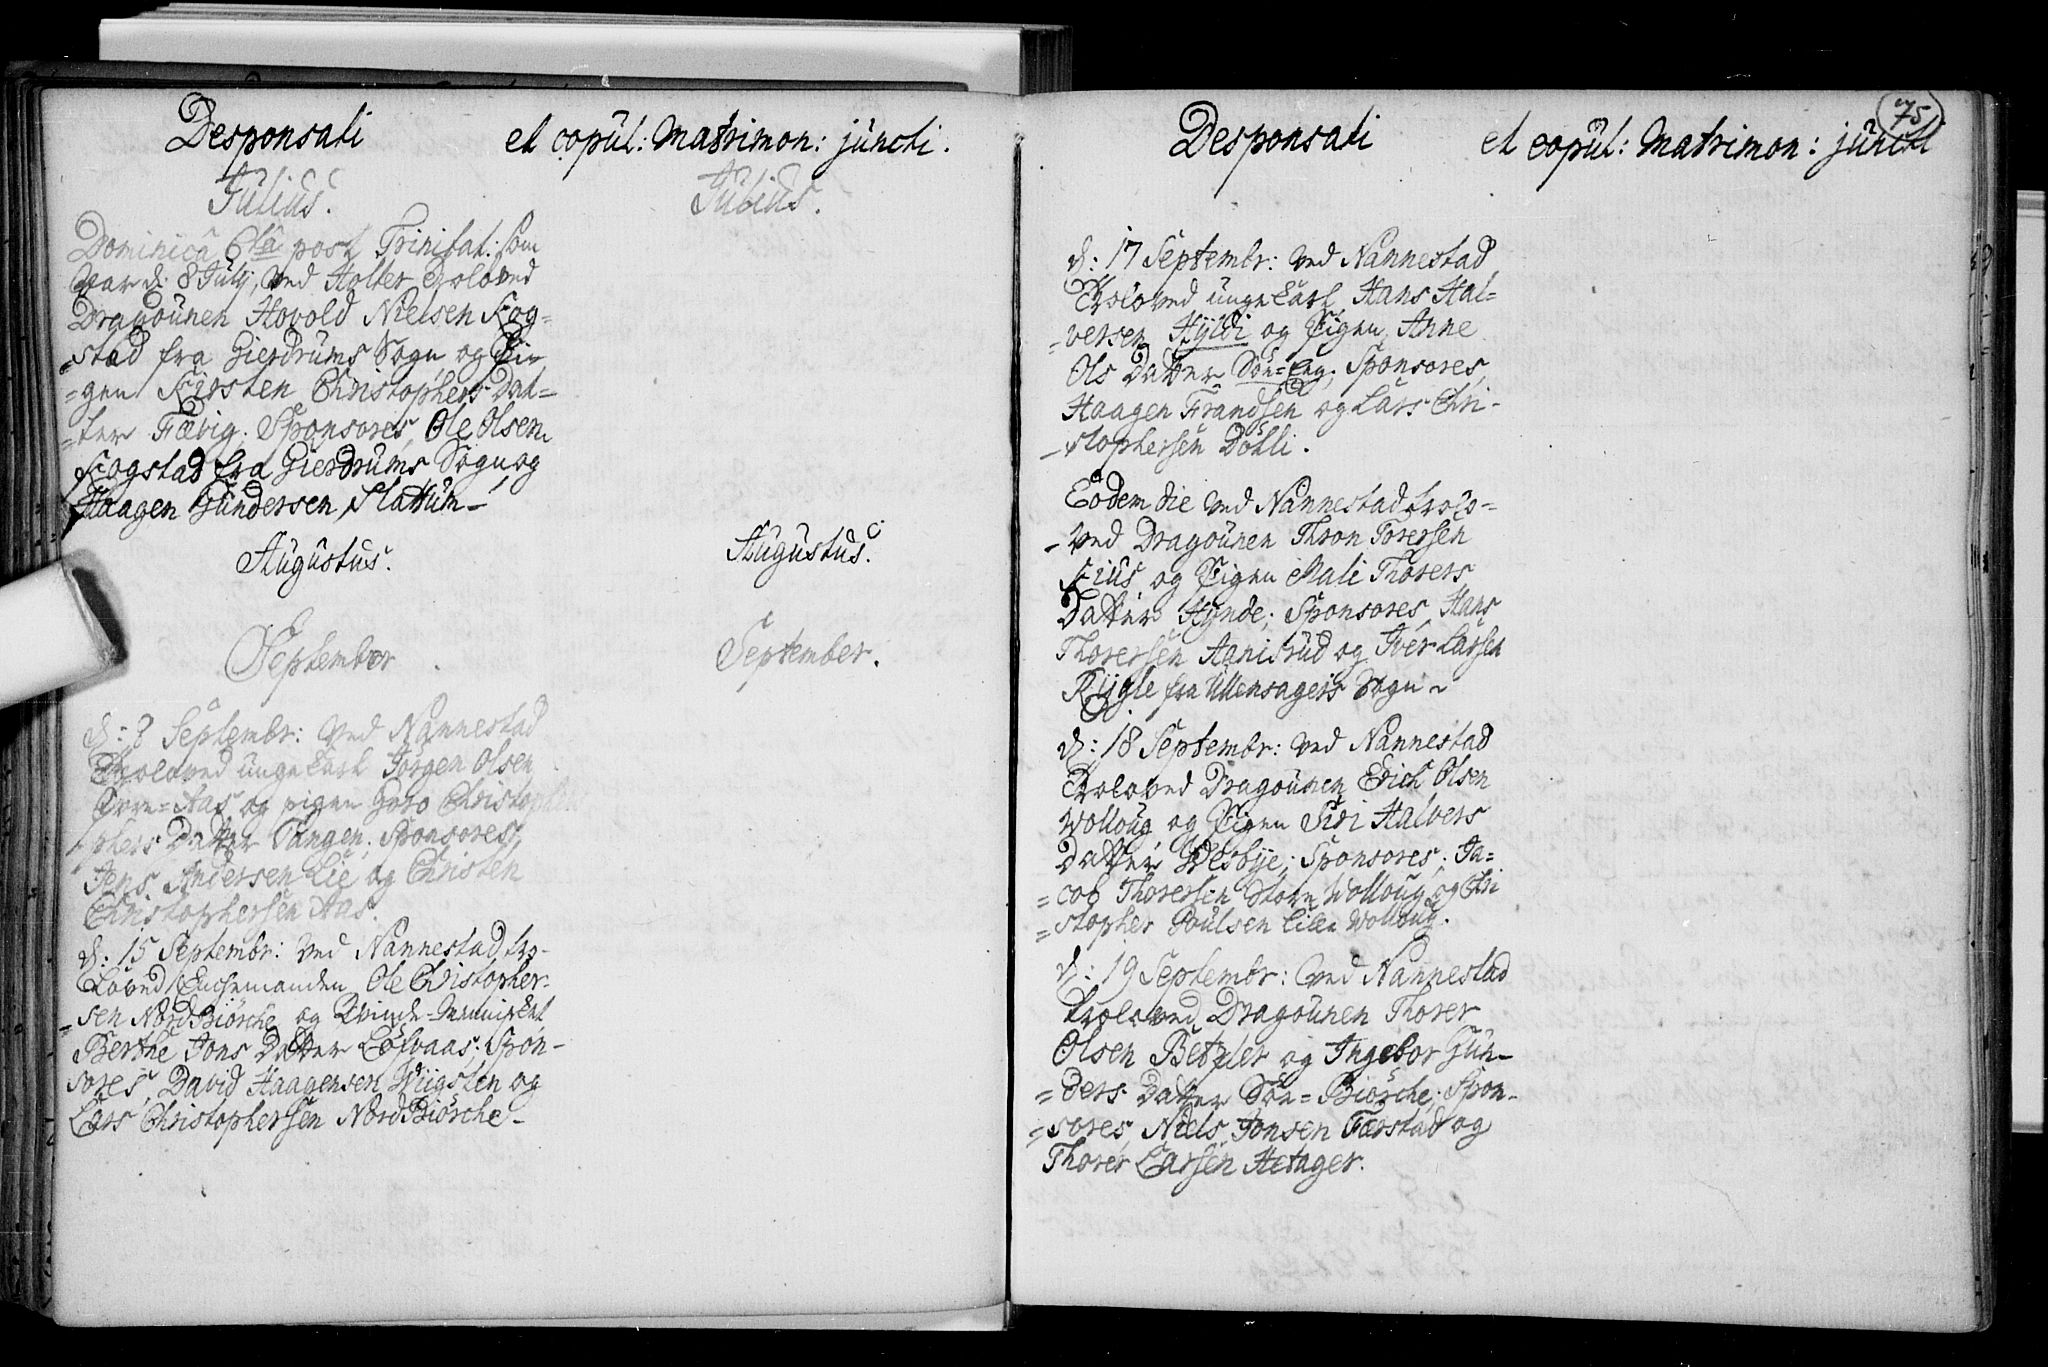 Desponsati
et copul: Matrimon: juncti.
Julius.
Julius.
Dominicâ 6tâ post Trinitat: som
var d: 8 July, ved Holter troloved
Dragounen Hovold Nielsen Kog=
=stad fra Gierdrums Sogn, og Pi=
=gen Kirsten Christophers Dat=
=ter Fævig. Sponsores, Ole Olsen
Kogstad fra Gierdrums Sogn og
Haagen Gundersen Slattum
Augustus.
Augustus.
September
September.
d: 3 Septembr: ved Nannestad
Troloved unge Karl Jörgen Olsen
Aas og pigen Goro Christo
phers Datter Tangen; Sponsores,
Jens Andersen Lie og Christen
Christophersen Aas.
d: 15 Septembr: ved Nannestad tro-
loved Enchemanden Ole Christopher-
=sen Nord Biörche og Qvinde-Mennisket
Berthe Jons Datter Löfvaas; Spon-
sores, David Haagensen Wiigsten og
Lars Christophersen Nord Biörche
75
Desponsati
et copul: Matrimon: juncti
d: 17 Septembr: ved Nannestad
Troloved unge Karl Hans Hal=
=versen Hyldi og Pigen Anne
Ols Datter Sön=Eng; Sponsores,
Haagen Frandsen og Lars Chri-
-stophersen Döhli.
Eodem die ved Nannestad trolo=
=ved Dragounen Thron Torersen
Kius og Pigen Mali Thorers
Datter Hynde; Sponsores, Hans
Thorersen Aanisrud og Iver Larsen
Rygle fra Ullensagers Sogn
d: 18 Septembr: ved Nannestad
Troloved Dragounen Erich Olsen
Wolloug og Pigen Siri Halvers
Datter Wesbye; Sponsores; Ja=
=cob Thorersen Store Wolloug og Chri
=stopher Poulsen Lille Wolloug.
d: 19 Septembr: ved Nannestad
troloved Dragounen Thorer
Olsen Betzler og Ingebor Gun=
=ders Datter Sön=Biörche; Spon-
=sores, Niels Jonsen Færstad og
Thorer Larsen Aetager.